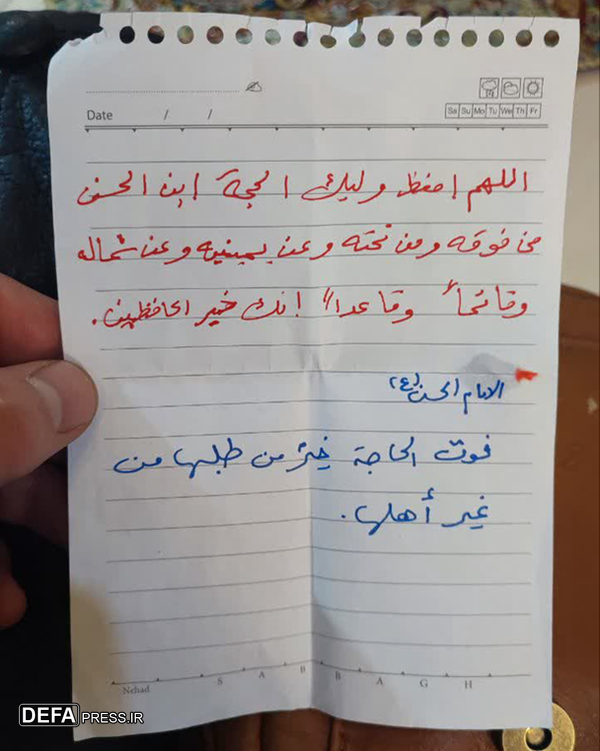 Date / /
Sa Su Mo Tu We Th Fr
اللهم إحفظ وليك الحجة ابن الحسن
من فوقه ومن تحته وعن يمينه وعن شماله
وقائماً وقاعداً إنك خير الحافظين.
الامام الحسن (ع)
فوت الحاجة خيرٌ من طلبها من
غير أهلها.
Nehad S A B B A G H
DEFA PRESS.IR